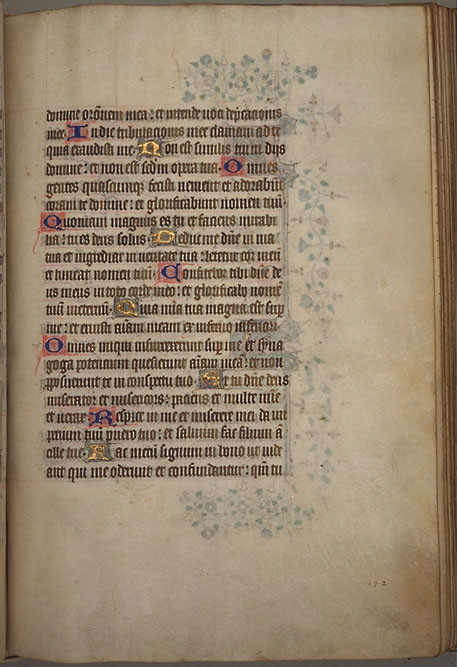 domine orōnem mea : et intende voci dep̄cationis
mee. In die tribulationis mee clamaui ad te
quia exaudisti me. Non est similis tui in dijs
domine : et non est scdm opera tua. Omnes
gentes quascumq; fecisti venient et adorabūt
coram te domine : et glorificabunt nomen tuū.
Quoniam magnus es tu et faciens mirabi
lia : tu es deus solus. Deduc me dn̄e in uia
tua et ingrediar in ueritate tua : letetur cor meū
et timeat nomen tuū. Confitebor tibi dn̄e de
us meus in toto corde meo : et glorificabo nomē
tuū in eternū. Quia mīa tua magna est sup
me : et eruisti aīam meam ex inferno inferiori.
Omnes iniqui insurrexerunt sup me et syna
goga potentium quesierunt aīam meā : et non
proposuerunt te in conspectu tuo. Et tu dn̄e deus
miserator et misericors : paciens et multe mīe
et uerax. Respice in me et miserere mei da im
perium tuū puero tuo : et saluum fac filium ā
cille tue. Fac mecū signum in bono ut uide
ant qui me oderunt et confundantur : qm̄ tu
172